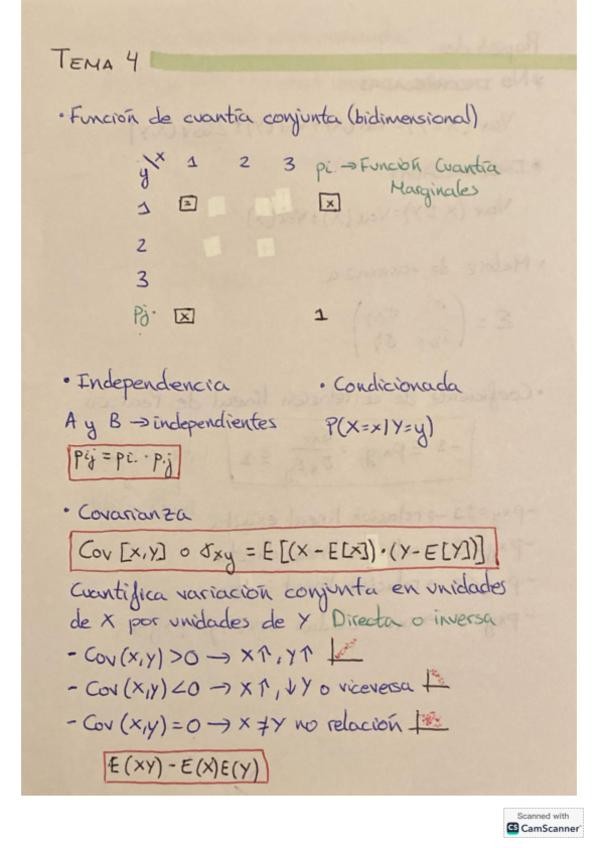 TEMA 4
• Función de cuantía conjunta (bidimensional)
y\x 1 2 3 pi. → Función Cuantía
Marginales
1 x
2
3
p.j x 1
• Independencia • Condicionada
A y B → independientes P(X=x/Y=y)
pij = pi. · p.j
• Covarianza
Cov [x,y] o σxy = E[(X-E[X])·(Y-E[Y])]
Cuantifica variación conjunta en unidades
de X por unidades de Y Directa o inversa
- Cov(x,y) > 0 → X↑, Y↑
- Cov(x,y) < 0 → X↑, ↓Y o viceversa
- Cov(x,y) = 0 → X ≠ Y no relación
E(XY) - E(X)E(Y)
Scanned with
CS CamScanner